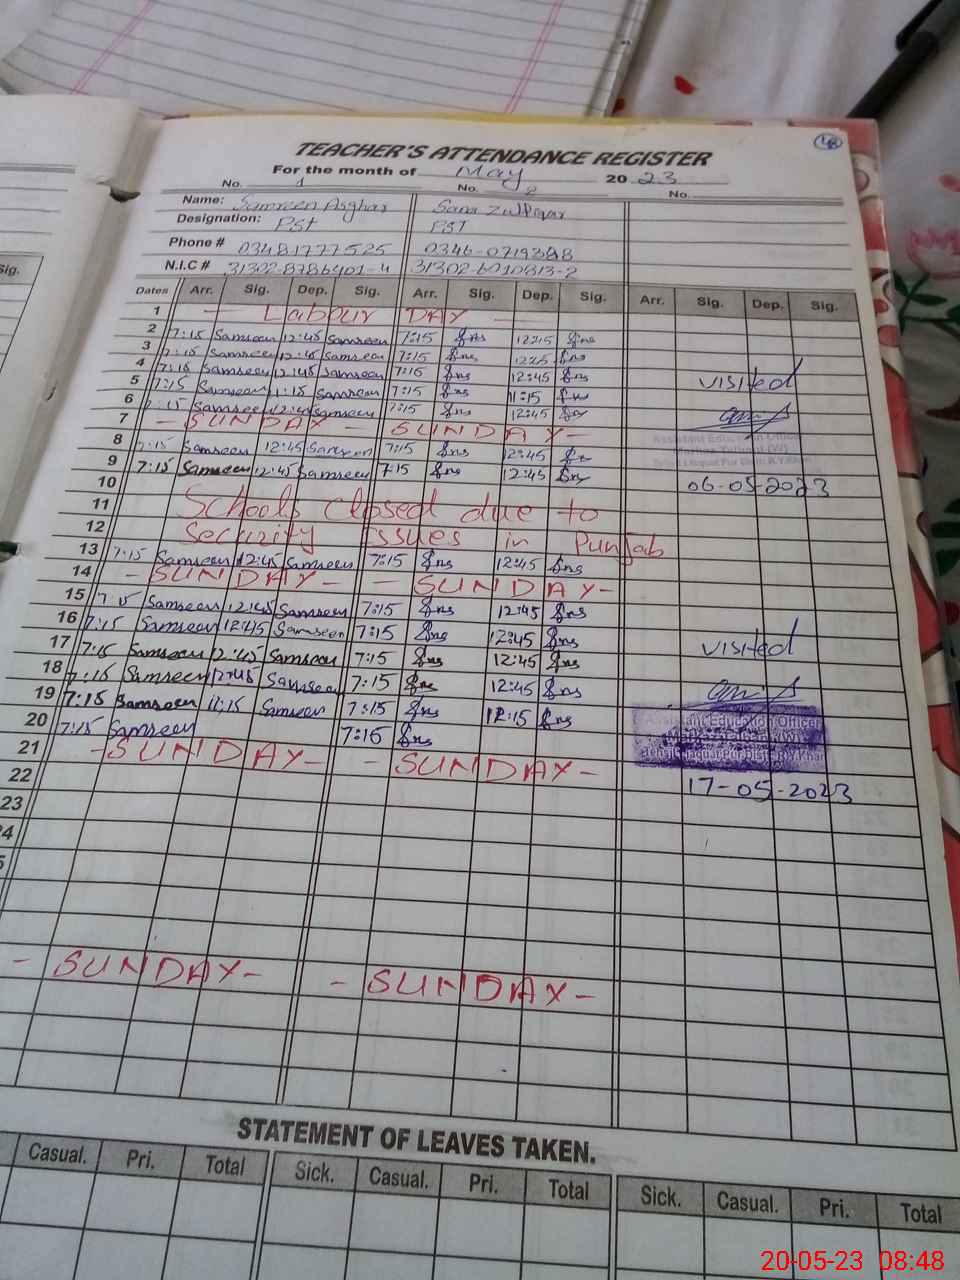 48
TEACHER'S ATTENDANCE REGISTER
For the month of May 20 23
No. 1 No. 2 No.
Name: Samreen Asghar Sana Zulfiqar
Designation: PST PST
Phone # 03481777525 0346-0719388
N.I.C # 31302-8786401-4 31302-6010813-2
Sig.
Dates Arr. Sig. Dep. Sig. Arr. Sig. Dep. Sig. Arr. Sig. Dep. Sig.
1 - Labour DAY -
2 7:15 Samreen 12:45 Samreen 7:15 12:45
3 7:15 Samreen 12:45 Samreen 7:15 12:45
4 7:15 Samreen 12:45 Samreen 7:15 12:45
visited
5 7:15 Samreen 11:15 Samreen 7:15 11:15
6 7:15 Samreen 12:45 Samreen 7:15 12:45
7 - SUNDAY - - SUNDAY -
Assistant Education Officer
8 7:15 Samreen 12:45 Samreen 7:15 12:45
9 7:15 Samreen 12:45 Samreen 7:15 12:45
10 06-05-2023
11 Schools closed due to
12 Security issues in Punjab
13 7:15 Samreen 12:45 Samreen 7:15 12:45
14 - SUNDAY - - SUNDAY -
15 7:15 Samreen 12:45 Samreen 7:15 12:45
16 7:15 Samreen 12:45 Samreen 7:15 12:45
visited
17 7:15 Samreen 12:45 Samreen 7:15 12:45
18 7:15 Samreen 12:45 Samreen 7:15 12:45
19 7:15 Samreen 11:15 Samreen 7:15 12:15
Assistant Education Officer
20 7:15 Samreen 7:15
21 - SUNDAY - - SUNDAY -
22 17-05-2023
23
- SUNDAY - - SUNDAY -
STATEMENT OF LEAVES TAKEN.
Casual. Pri. Total Sick. Casual. Pri. Total Sick. Casual. Pri. Total
20-05-23 08:48